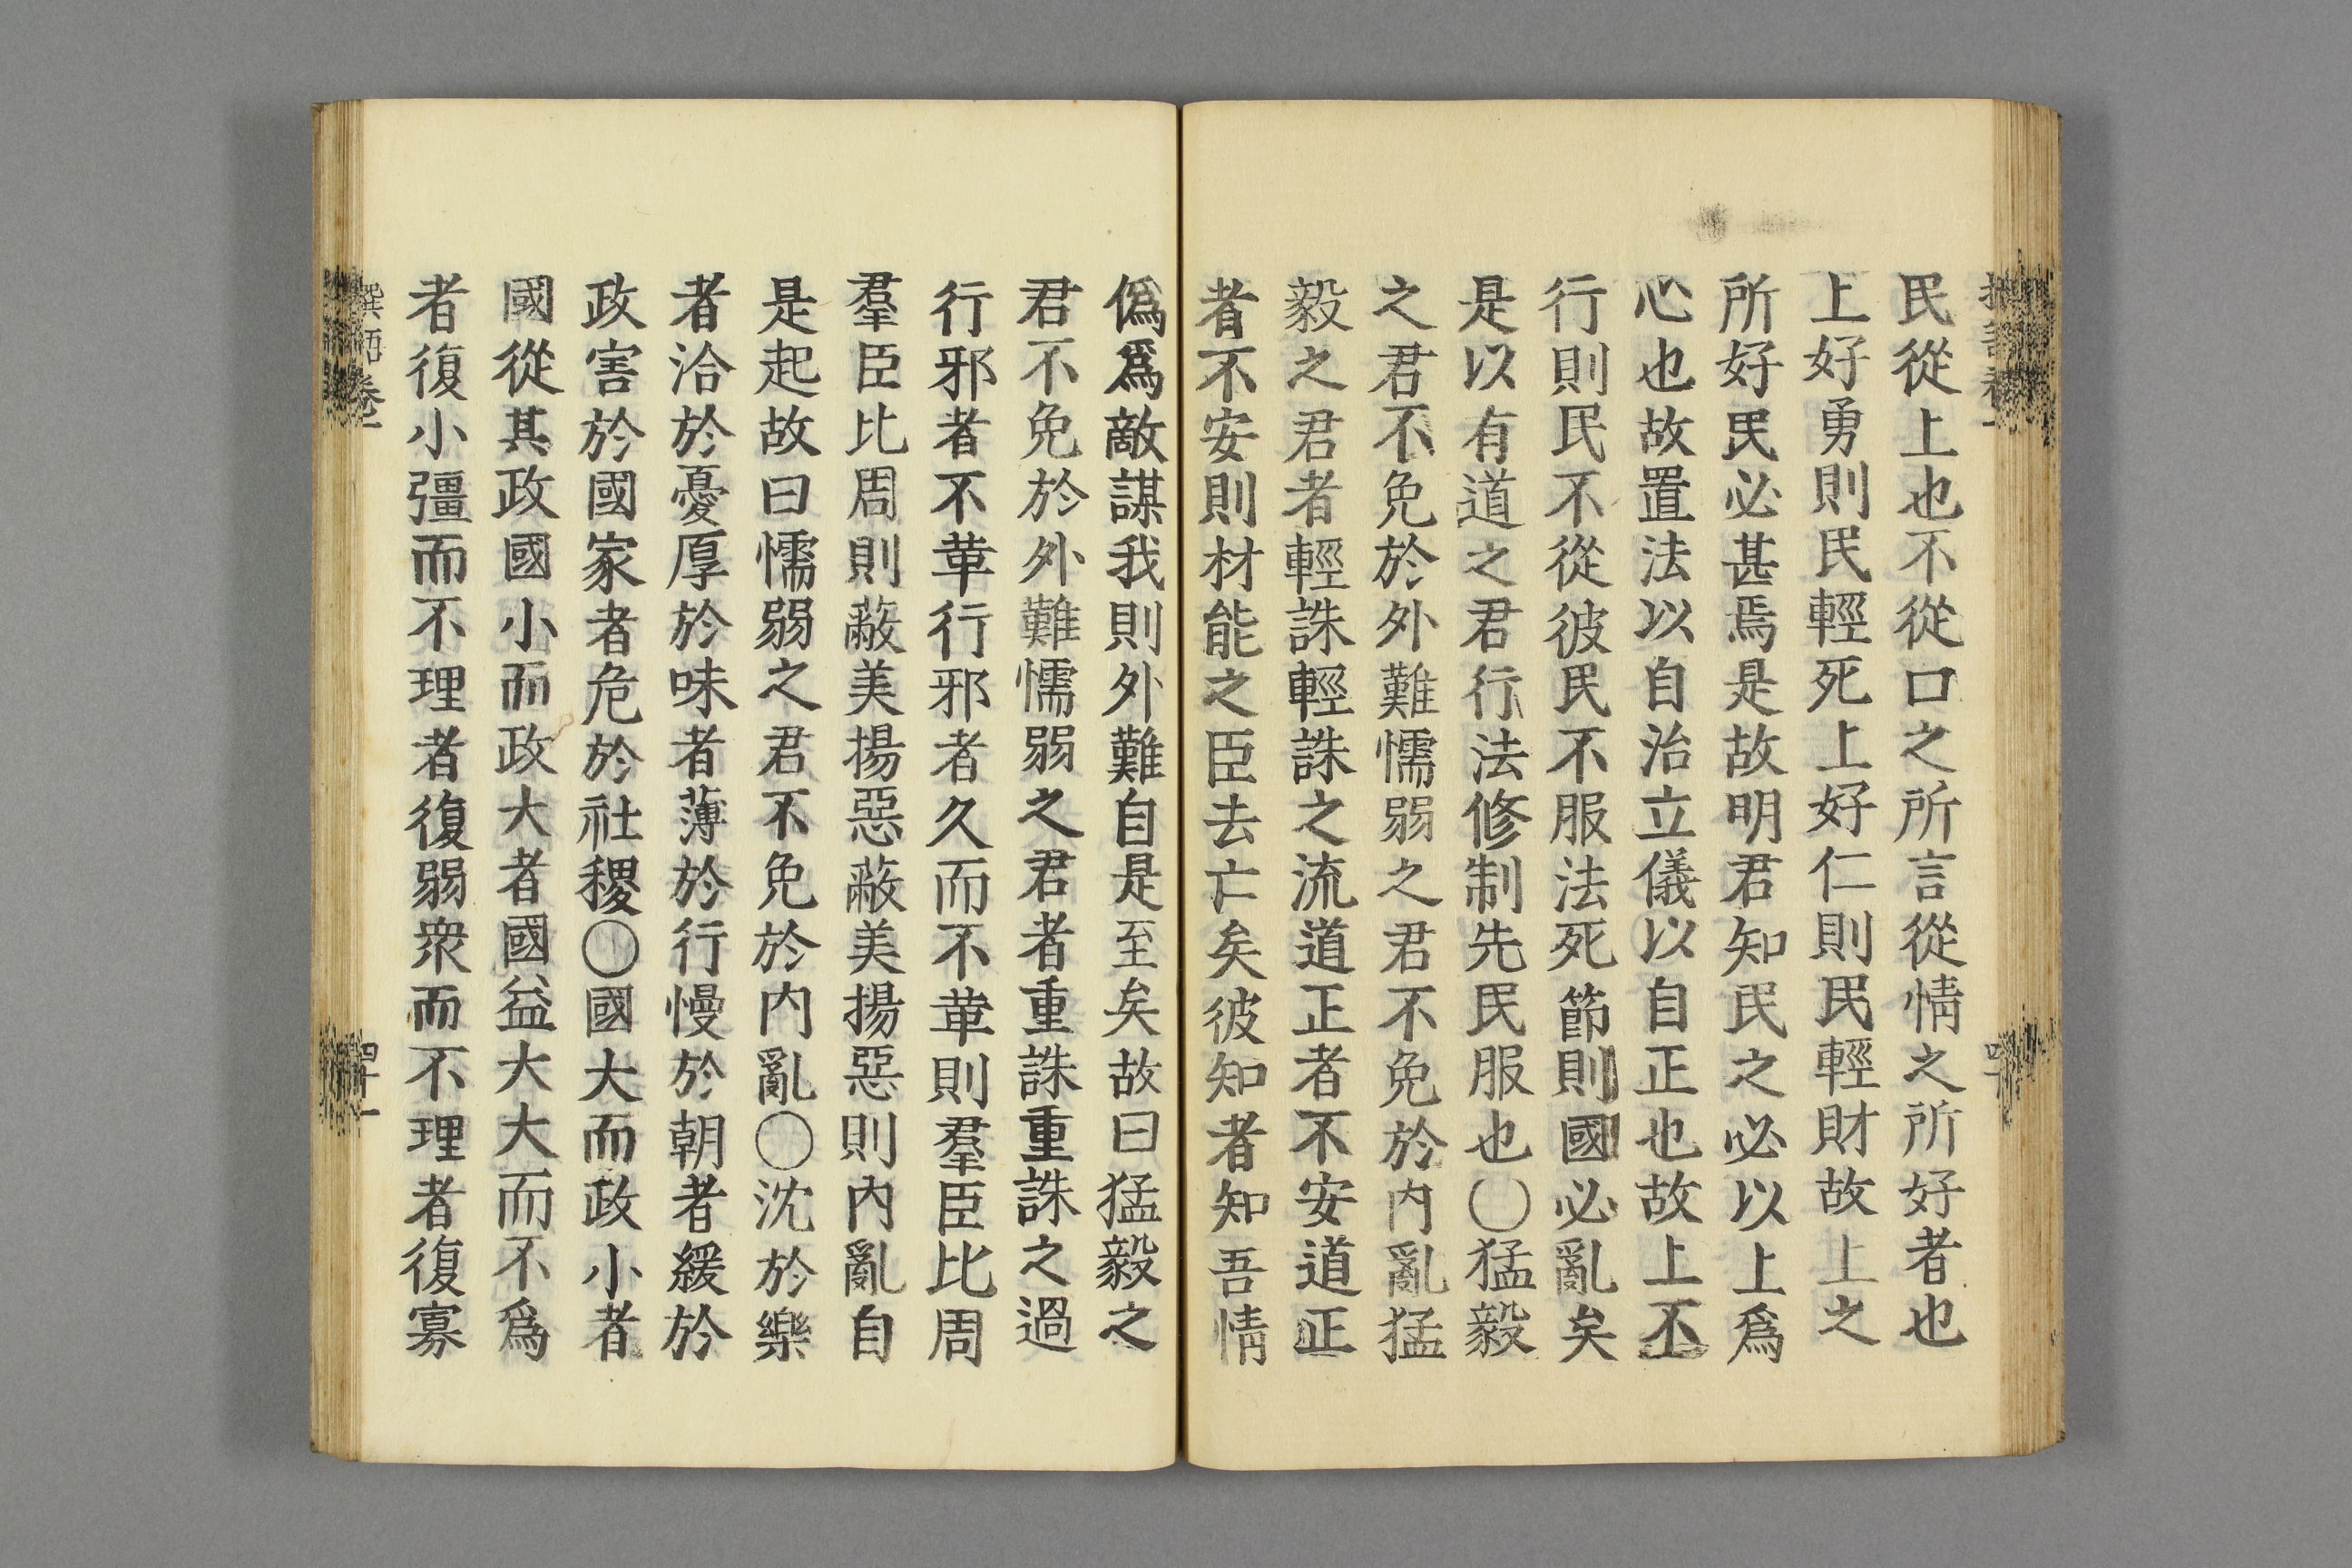 民從上也不從口之所言從情之所好者也
上好勇則民輕死上好仁則民輕財故上之
所好民必甚焉是故明君知民之必以上爲
心也故置法以自治立儀以自正也故上不
行則民不從彼民不服法死節則國必亂矣
是以有道之君行法修制先民服也〇猛毅
之君不免於外難懦弱之君不免於内亂猛
毅之君者輕誅輕誅之流道正者不安道正
者不安則材能之臣去亡矣彼知者知吾情
僞爲敵謀我則外難自是至矣故曰猛毅之
君不免於外難懦弱之君者重誅重誅之過
行邪者不革行邪者久而不革則羣臣比周
羣臣比周則蔽美揚惡蔽美揚惡則内亂自
是起故曰懦弱之君不免於内亂〇沈於樂
者洽於憂厚於味者薄於行慢於朝者緩於
政害於國家者危於社稷〇國大而政小者
國從其政國小而政大者國益大大而不爲
者復小彊而不理者復弱衆而不理者復寡
撰語卷一
四十一